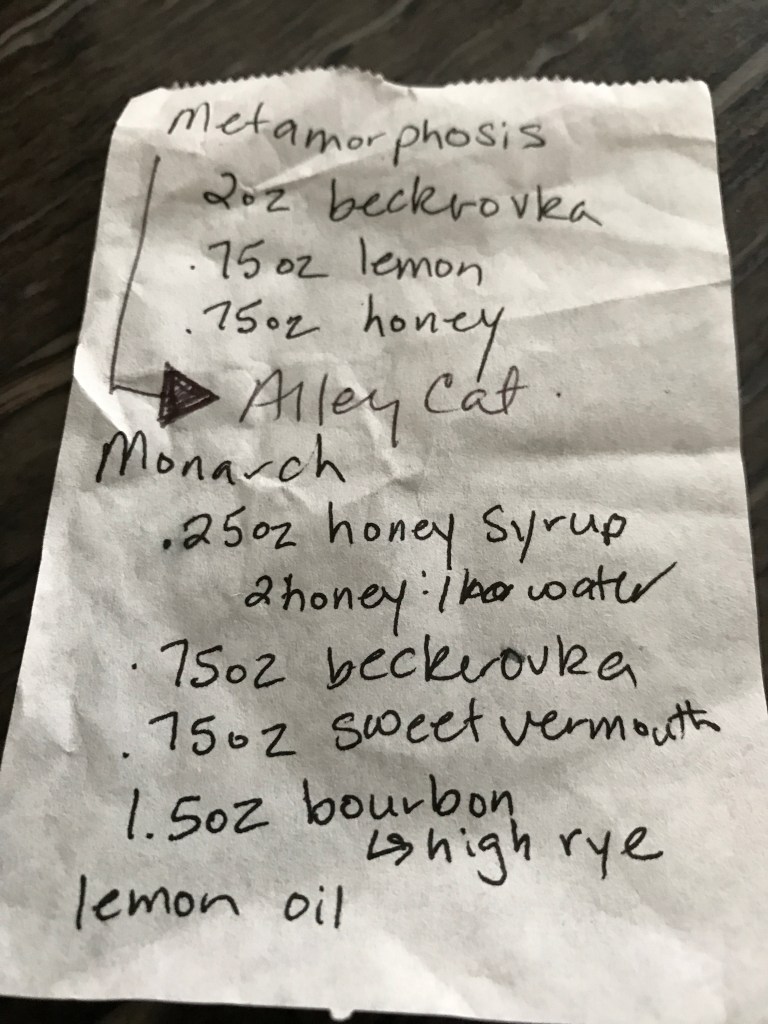 Metamorphosis
2oz beckrovka
.75oz lemon
.75oz honey
Alley Cat.
Monarch
.25oz honey syrup
2honey:1 water
.75oz beckerovka
.75oz sweet vermouth
1.5oz bourbon
↳ high rye
lemon oil